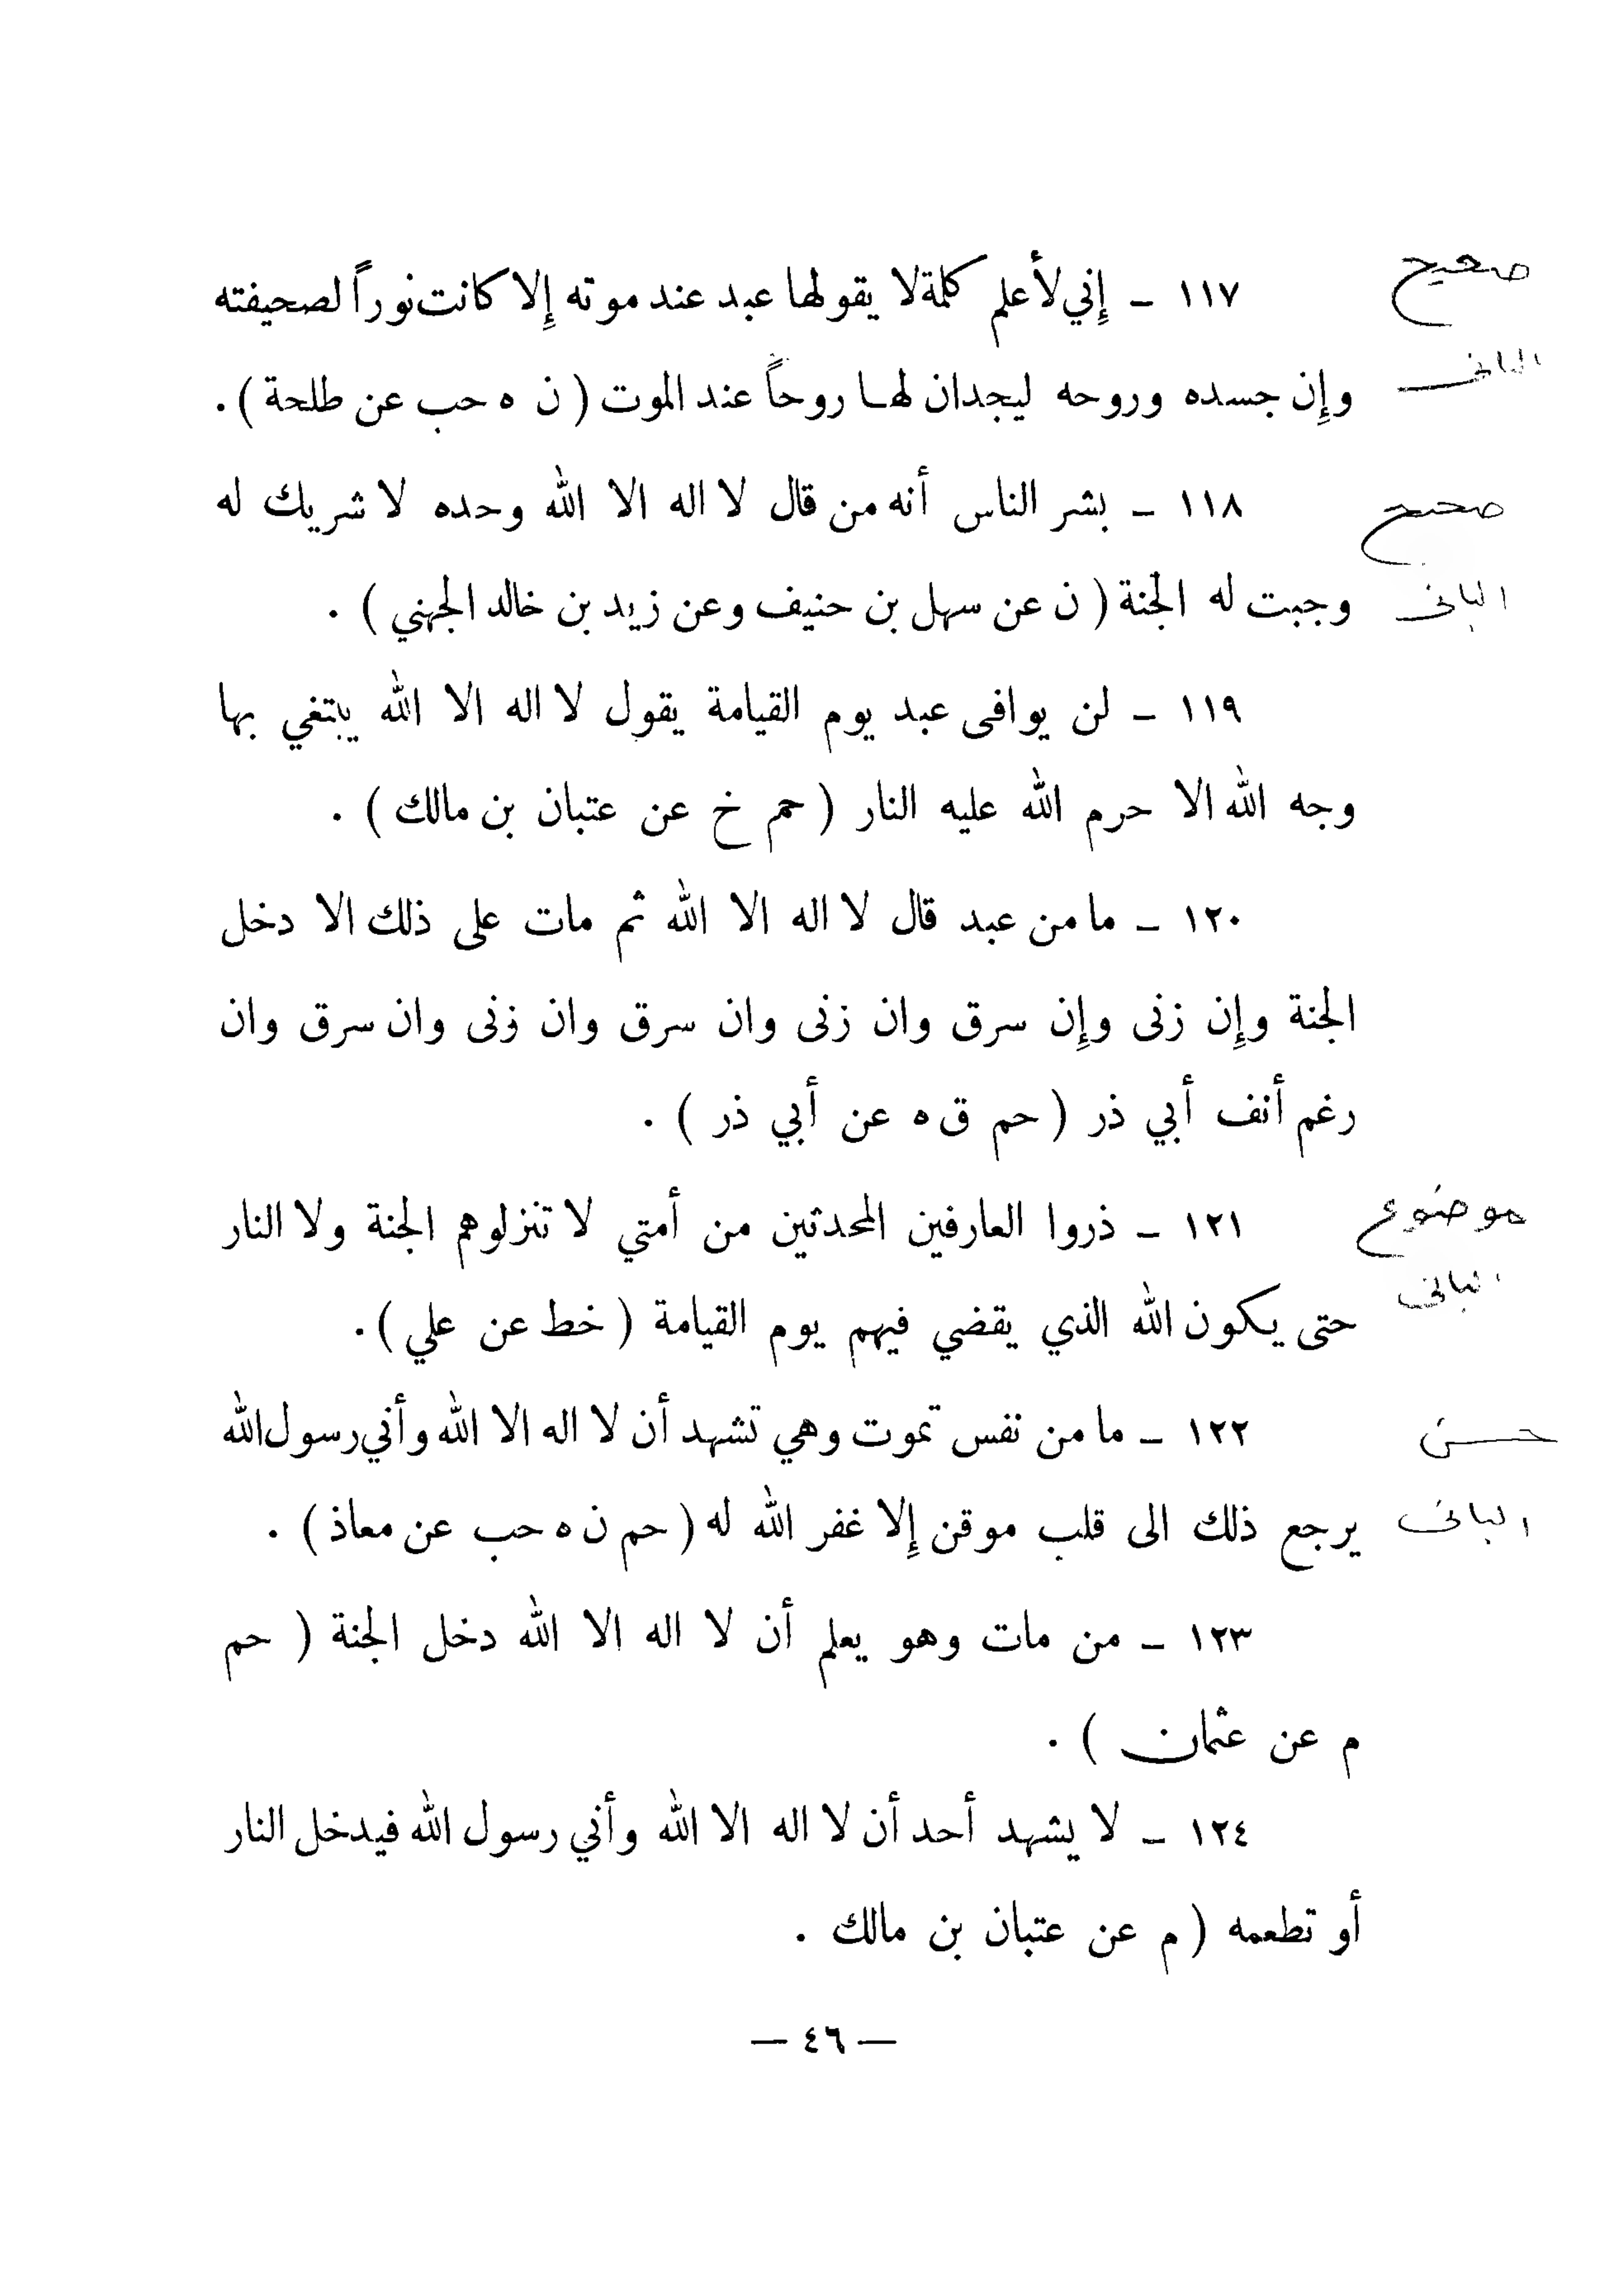 صحيح
١١٧ ـ إِني لأعلم كلمة لا يقولها عبد عند موته إِلا كانت نوراً لصحيفته
البانى
وإِن جسده وروحه ليجدان لها روحاً عند الموت ( ن ه حب عن طلحة ) .
صحيح
١١٨ ـ بشر الناس أنه من قال لا اله الا الله وحده لا شريك له
البانى
وجبت له الجنة ( ن عن سهل بن حنيف وعن زيد بن خالد الجهني ) .
١١٩ ـ لن يوافى عبد يوم القيامة يقول لا اله الا الله يبتغي بها
وجه الله الا حرم الله عليه النار ( حم خ عن عتبان بن مالك ) .
١٢٠ ـ ما من عبد قال لا اله الا الله ثم مات على ذلك الا دخل
الجنة وإِن زنى وإِن سرق وان زنى وان سرق وان زنى وان سرق وان
رغم أنف أبي ذر ( حم ق ه عن أبي ذر ) .
موضوع
١٢١ ـ ذروا العارفين المحدثين من أمتي لا تنزلوهم الجنة ولا النار
البانى
حتى يكون الله الذي يقضي فيهم يوم القيامة ( خط عن علي ) .
حسن
١٢٢ ـ ما من نفس تموت وهي تشهد أن لا اله الا الله وأني رسول الله
البانى
يرجع ذلك الى قلب موقن إِلا غفر الله له ( حم ن ه حب عن معاذ ) .
١٢٣ ـ من مات وهو يعلم أن لا اله الا الله دخل الجنة ( حم
م عن عثمان ) .
١٢٤ ـ لا يشهد أحد أن لا اله الا الله وأني رسول الله فيدخل النار
أو تطعمه ( م عن عتبان بن مالك .
— ٤٦ —